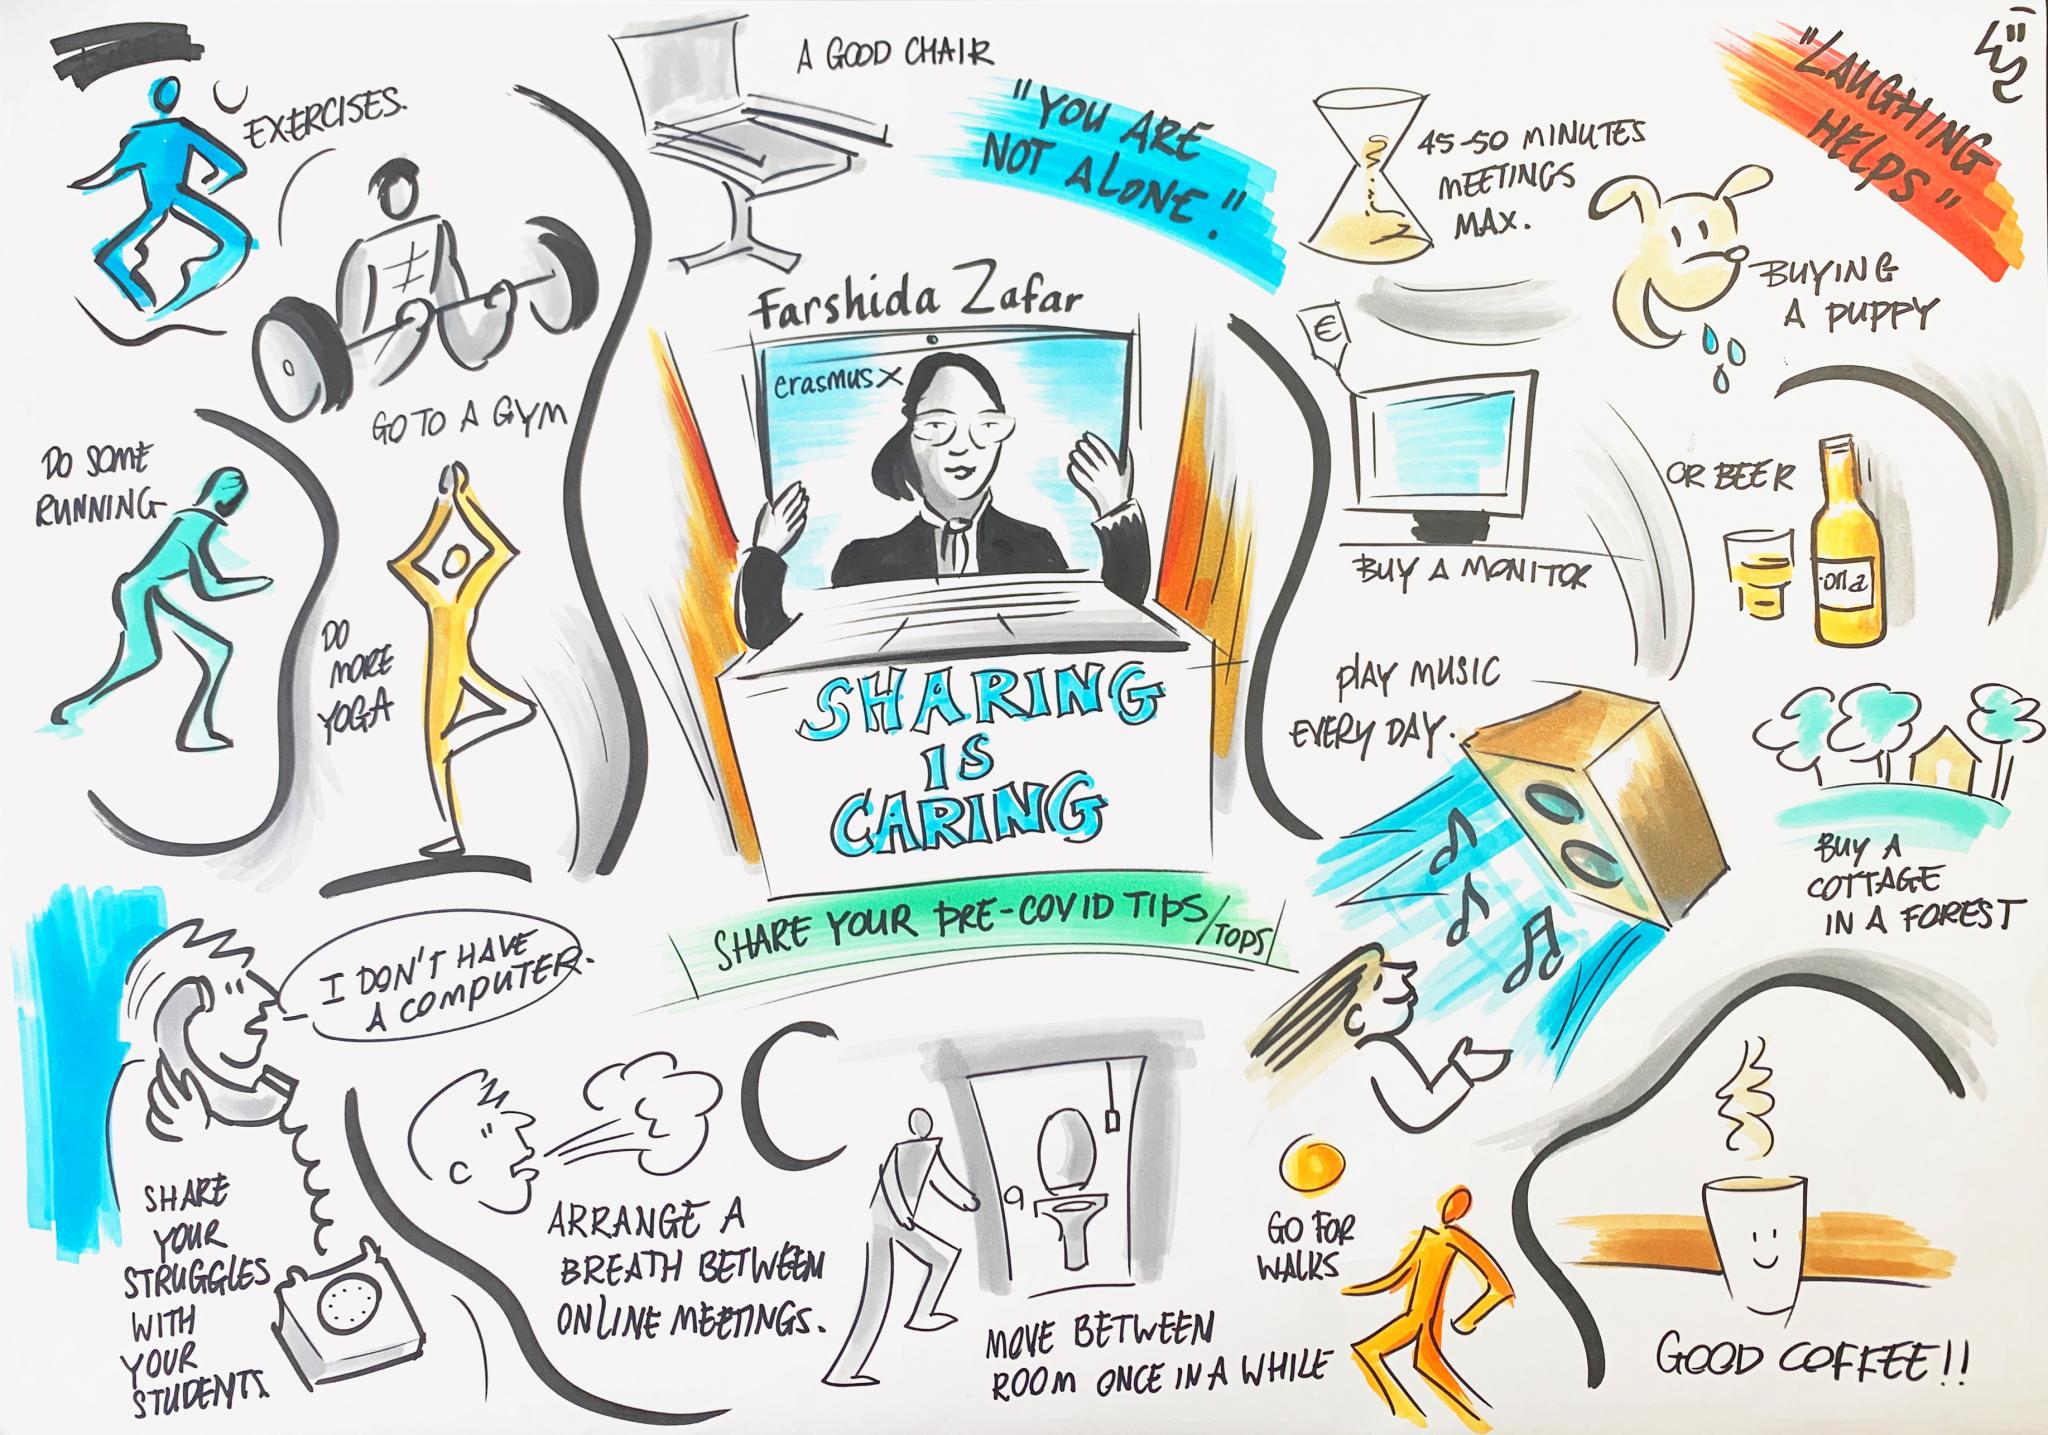 EXERCISES.
GO TO A GYM
DO SOME
RUNNING
DO
MORE
YOGA
A GOOD CHAIR
"YOU ARE
NOT ALONE."
Farshida Zafar
erasmusX
SHARING
IS
CARING
SHARE YOUR PRE-COVID TIPS/TOPS
45-50 MINUTES
MEETINGS
MAX.
"LAUGHING
HELPS"
BUYING
A PUPPY
€
BUY A MONITOR
OR BEER
PLAY MUSIC
EVERY DAY.
BUY A
COTTAGE
IN A FOREST
I DON'T HAVE
A COMPUTER.
SHARE
YOUR
STRUGGLES
WITH
YOUR
STUDENTS.
ARRANGE A
BREATH BETWEEN
ONLINE MEETINGS.
MOVE BETWEEN
ROOM ONCE IN A WHILE
GO FOR
WALKS
GOOD COFFEE!!